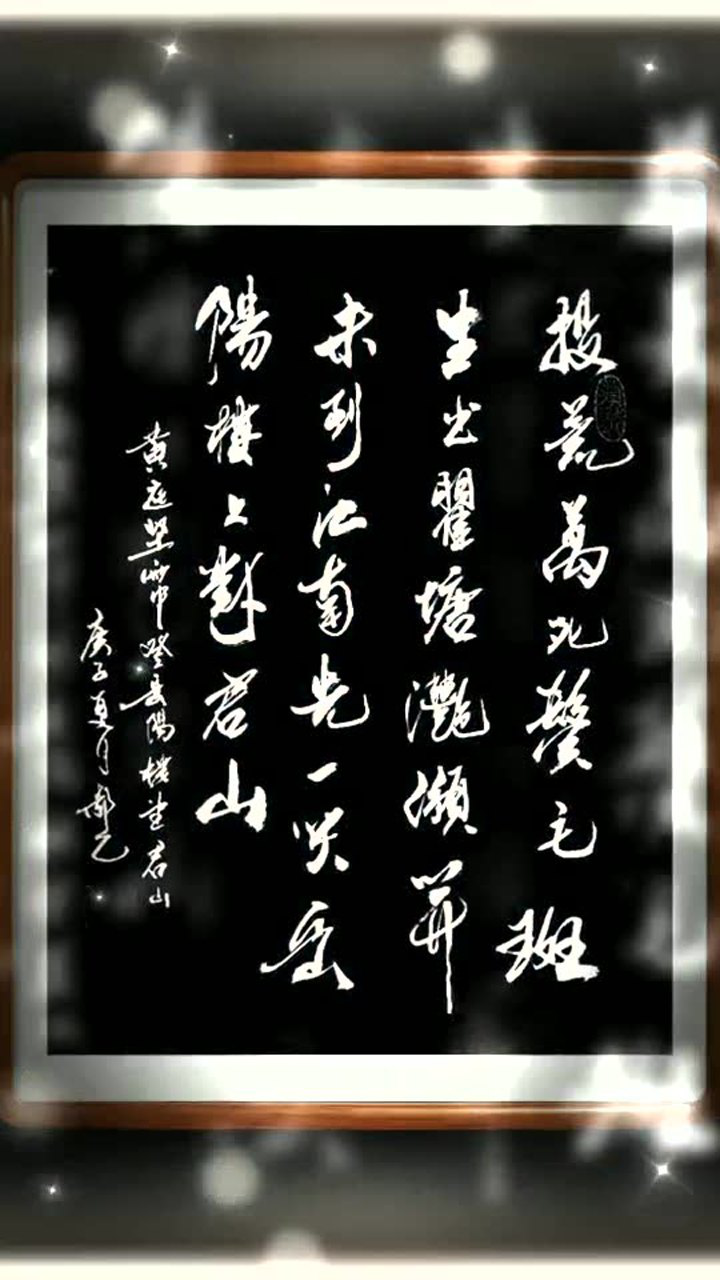 投荒萬死鬢毛斑
生出瞿塘灧澦關
未到江南先一笑岳
陽樓上對君山
黃庭堅雨中登岳陽樓望君山
庚子夏月